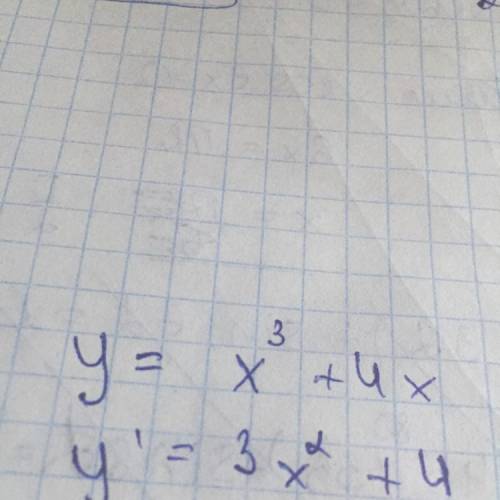 y = x³ + 4x
y' = 3x² + 4